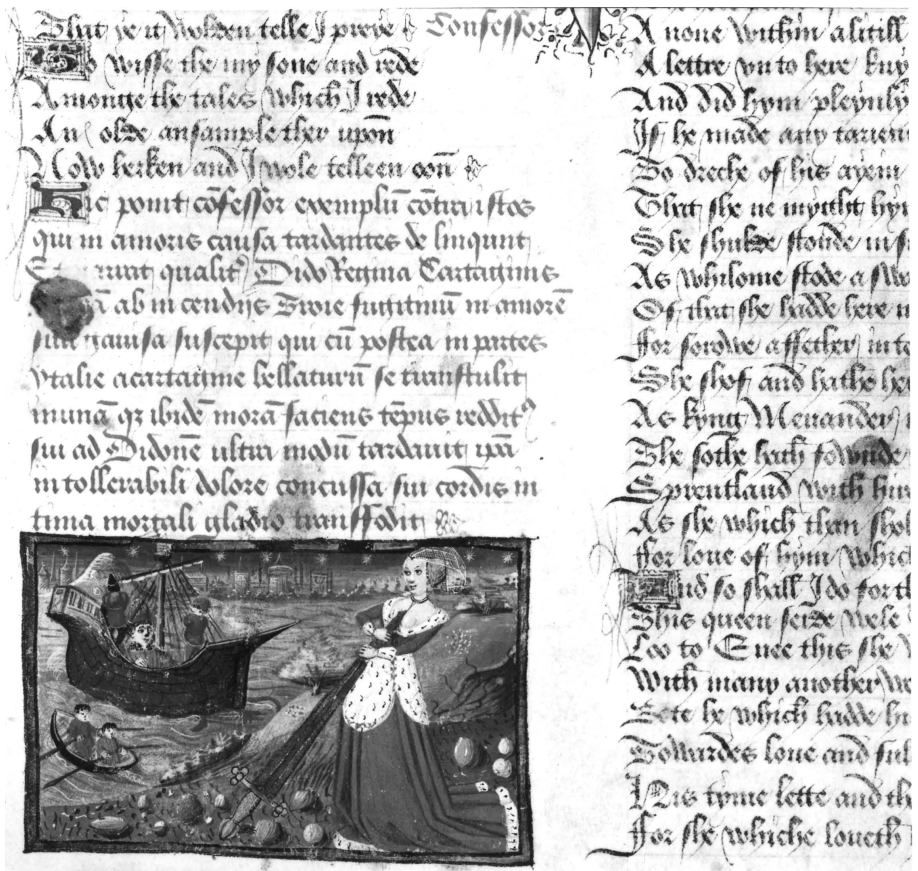 That ye it wolden telle I preye Confessor
To wisse the my sone and rede
Amonge the tales which I rede
An olde ansample ther upon
Now herken and I wole telleen oon̄
Hic ponit cōfessor exemplū cōtra istos
qui in amoris causa tardantes de linqunt
qualit Dido Regina Cartaginis
ab in cendijs Troie fugitiuū in amorē
suū gauisa suscepit qui cū postea in partes
ytalie a cartagine bellaturū se transtulit
ibidē morā faciens tēpus reddit
sui ad Didonē ultra modū tardauit ipā
in tollerabili dolore concussa sui cordis in
tima mortali gladio transfodit
A none within a litill
A lettre vn to here
And did hym pleynly
If he made any
To dreche of his ayein
That she ne myght hym
She shulde stonde
As whilome stode a
Of that she hadde here
For sorowe a ffether in
She shof and hathe
As kyng Menander
The sothe hath fownde
Sprentland with
As she which than
For loue of hym
And so shall I do for
This queen wele
Loo to Enee this she
With many another
Bote he which hadde
Towardes loue and
His tyme lette and
For she whiche loueth